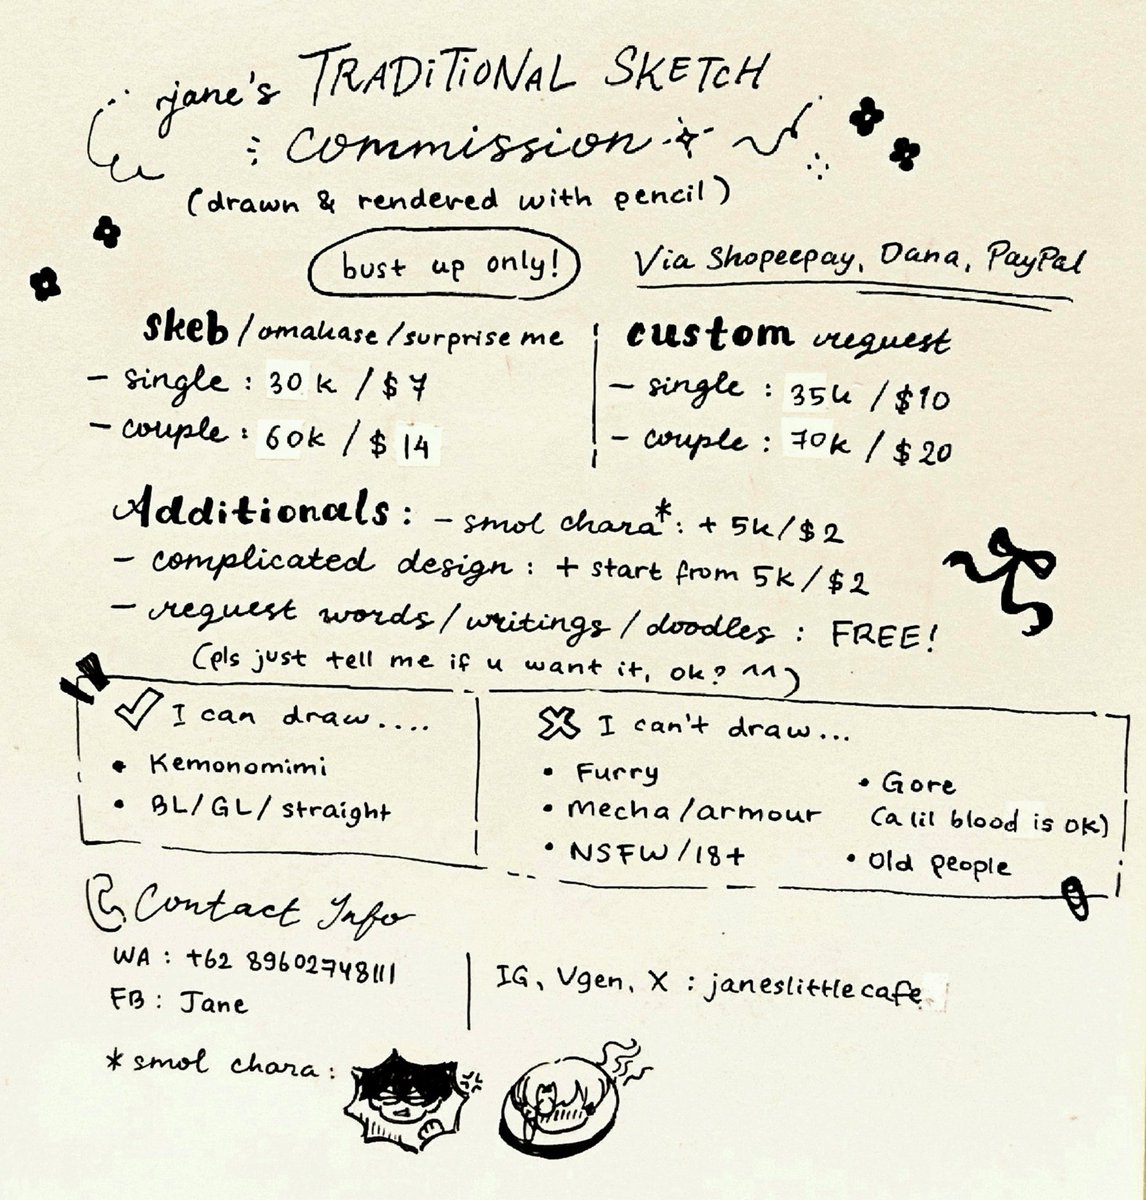 jane's TRADiTiONAL SKETCH
commission
(drawn & rendered with pencil)
bust up only!
Via Shopeepay, Dana, PayPal
skeb/omakase/surprise me
- single : 30k / $7
- couple : 60k / $14
custom request
- single : 35k / $10
- couple : 70k / $20
Additionals : - smol chara* : + 5k/$2
- complicated design : + start from 5k/$2
- request words/writings/doodles : FREE!
(pls just tell me if u want it, ok? ^^)
I can draw....
• Kemonomimi
• BL/GL/straight
I can't draw...
• Furry
• mecha/armour
• NSFW/18+
• Gore
(a lil blood is ok)
• Old people
Contact Info
WA : +62 89602748111
FB : Jane
IG, Vgen, X : janeslittlecafe
* smol chara :